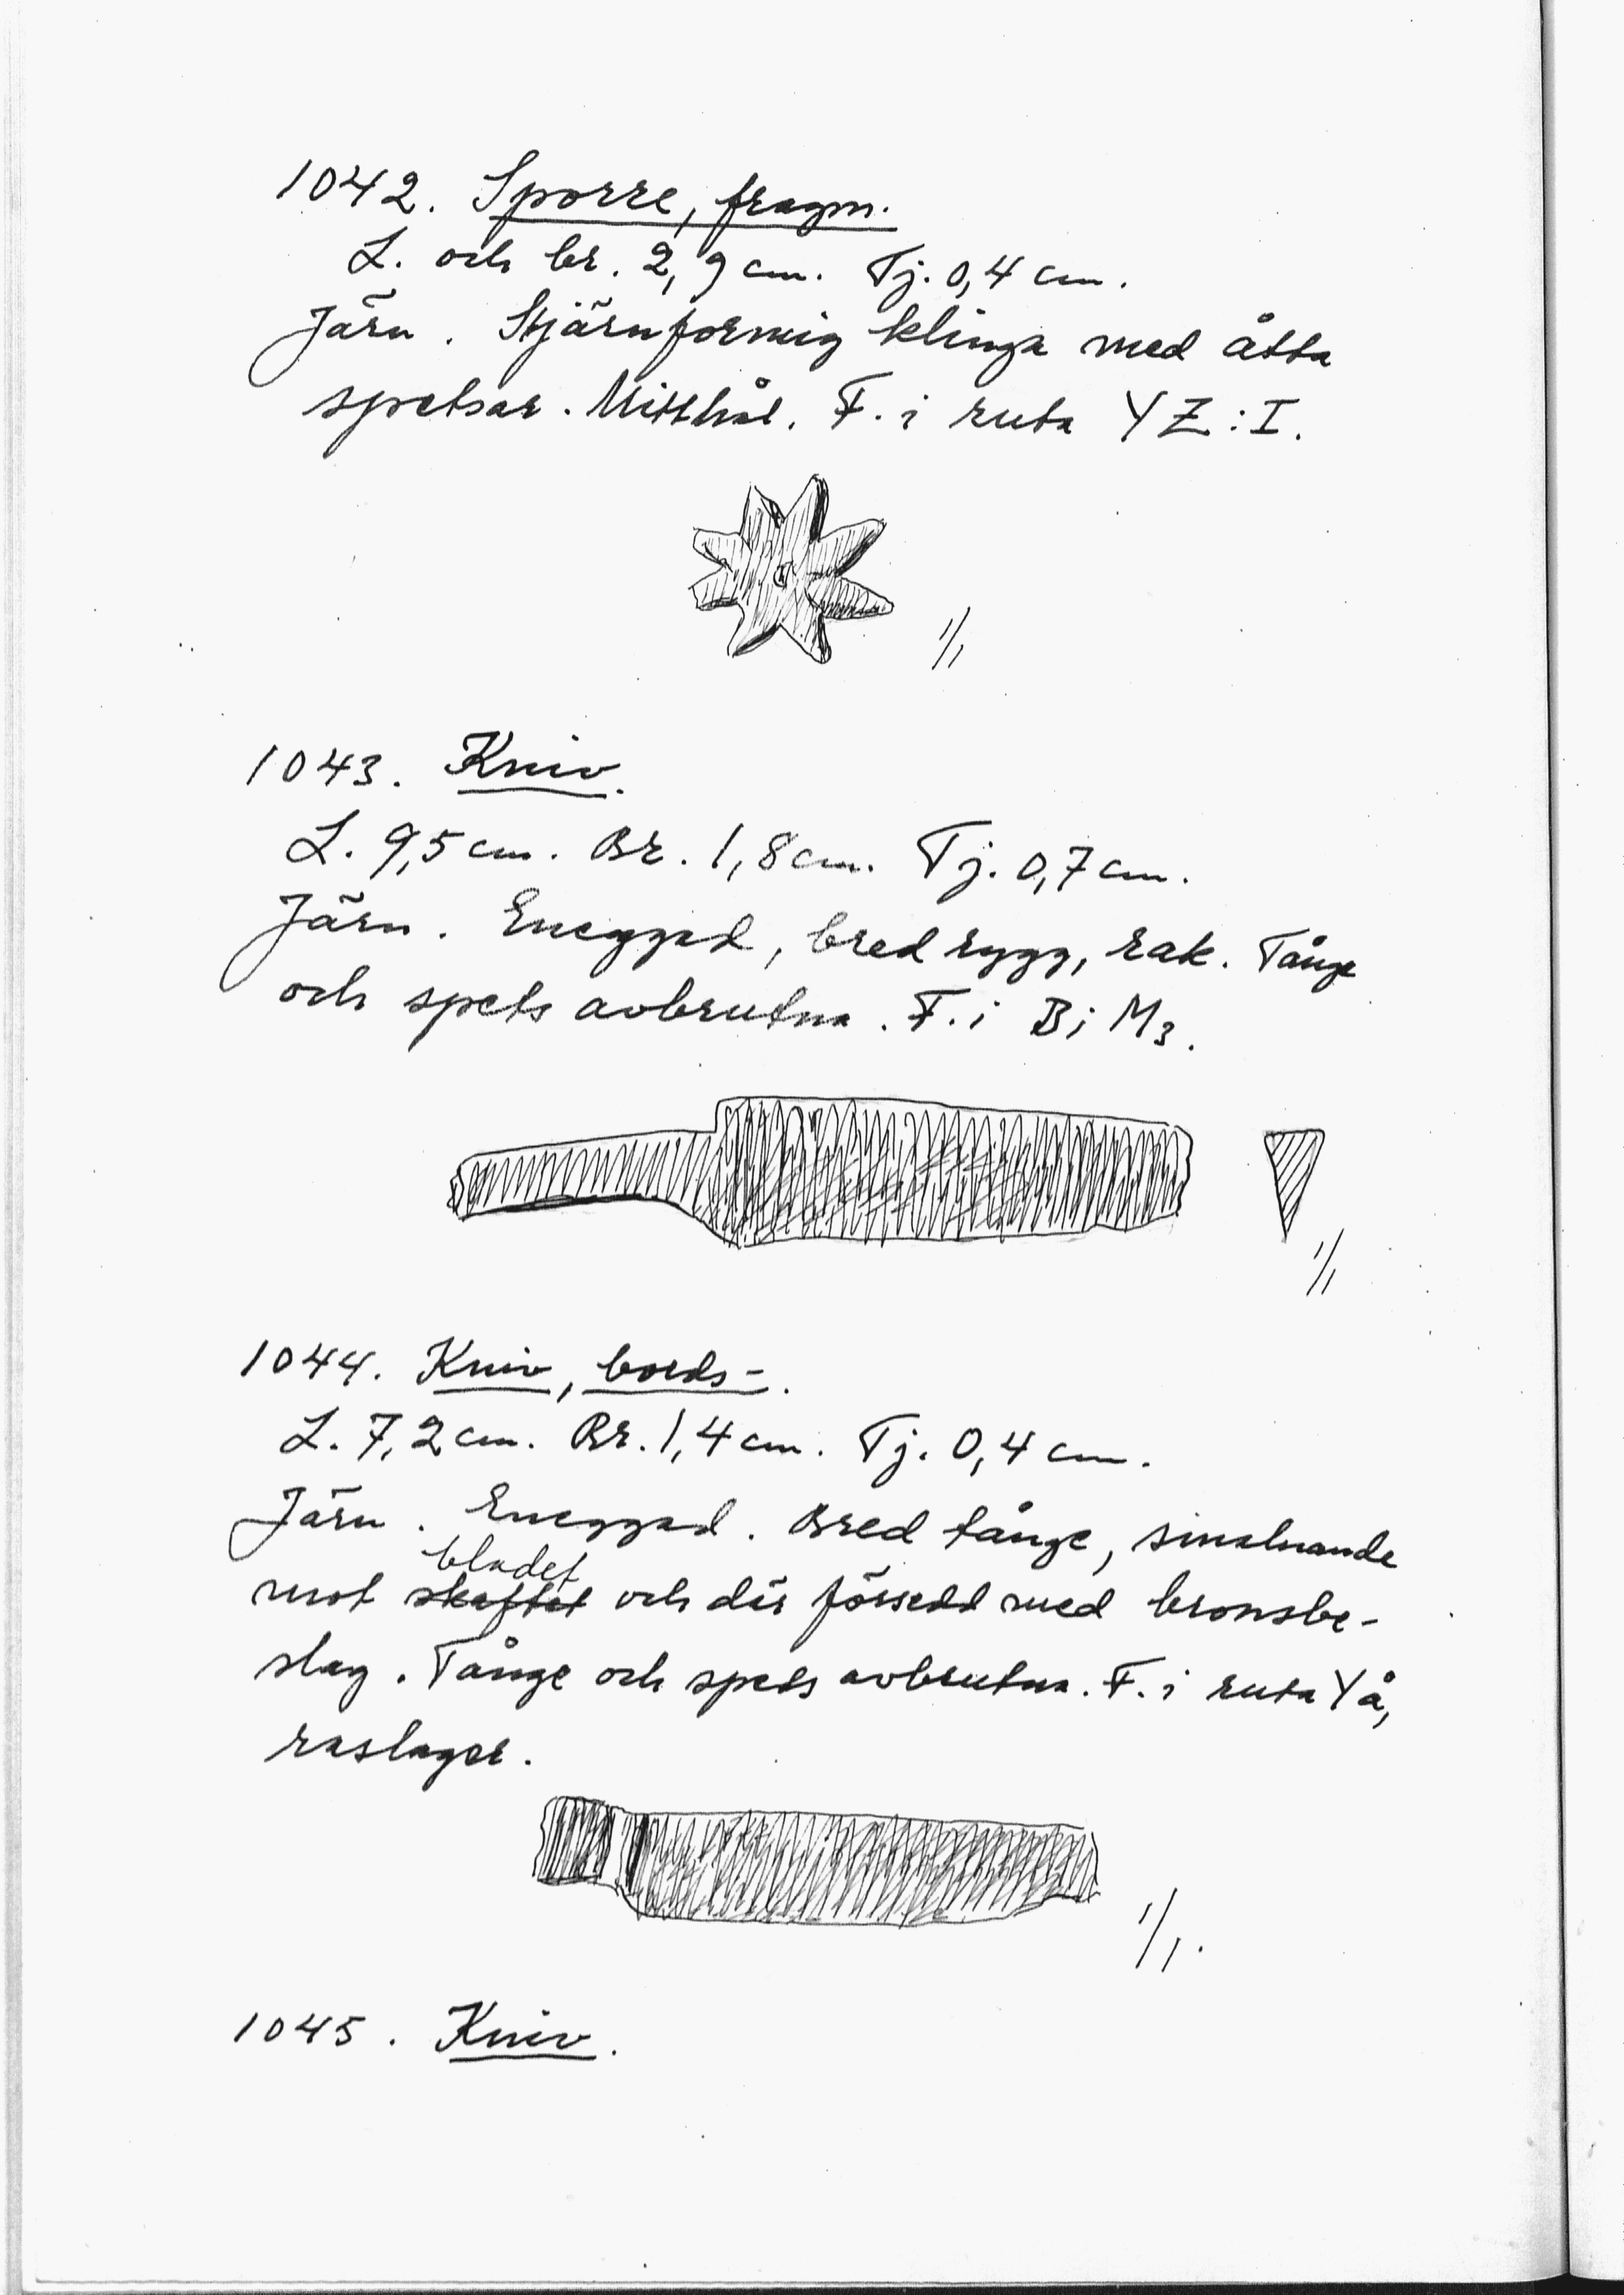 1042. Sporre, fragm.
L. och br. 2,9 cm. Tj. 0,4 cm.
Järn. Stjärnformig klinga med åtta
spetsar. Mitthål. F. i ruta YZ:I.
1/1
1043. Kniv.
L. 9,5 cm. Br. 1,8 cm. Tj. 0,7 cm.
Järn. Eneggad, bred rygg, rak. Tånge
och spets avbrutna. F. i B; M3.
1/1
1044. Kniv, bords-.
L. 7,2 cm. Br. 1,4 cm. Tj. 0,4 cm.
Järn. Eneggad. Bred tånge, smalnande
bladet
mot skaftet och där försedd med bronsbe-
slag. Tånge och spets avbrutna. F. i ruta YÅ,
raslager.
1/1.
1045. Kniv.